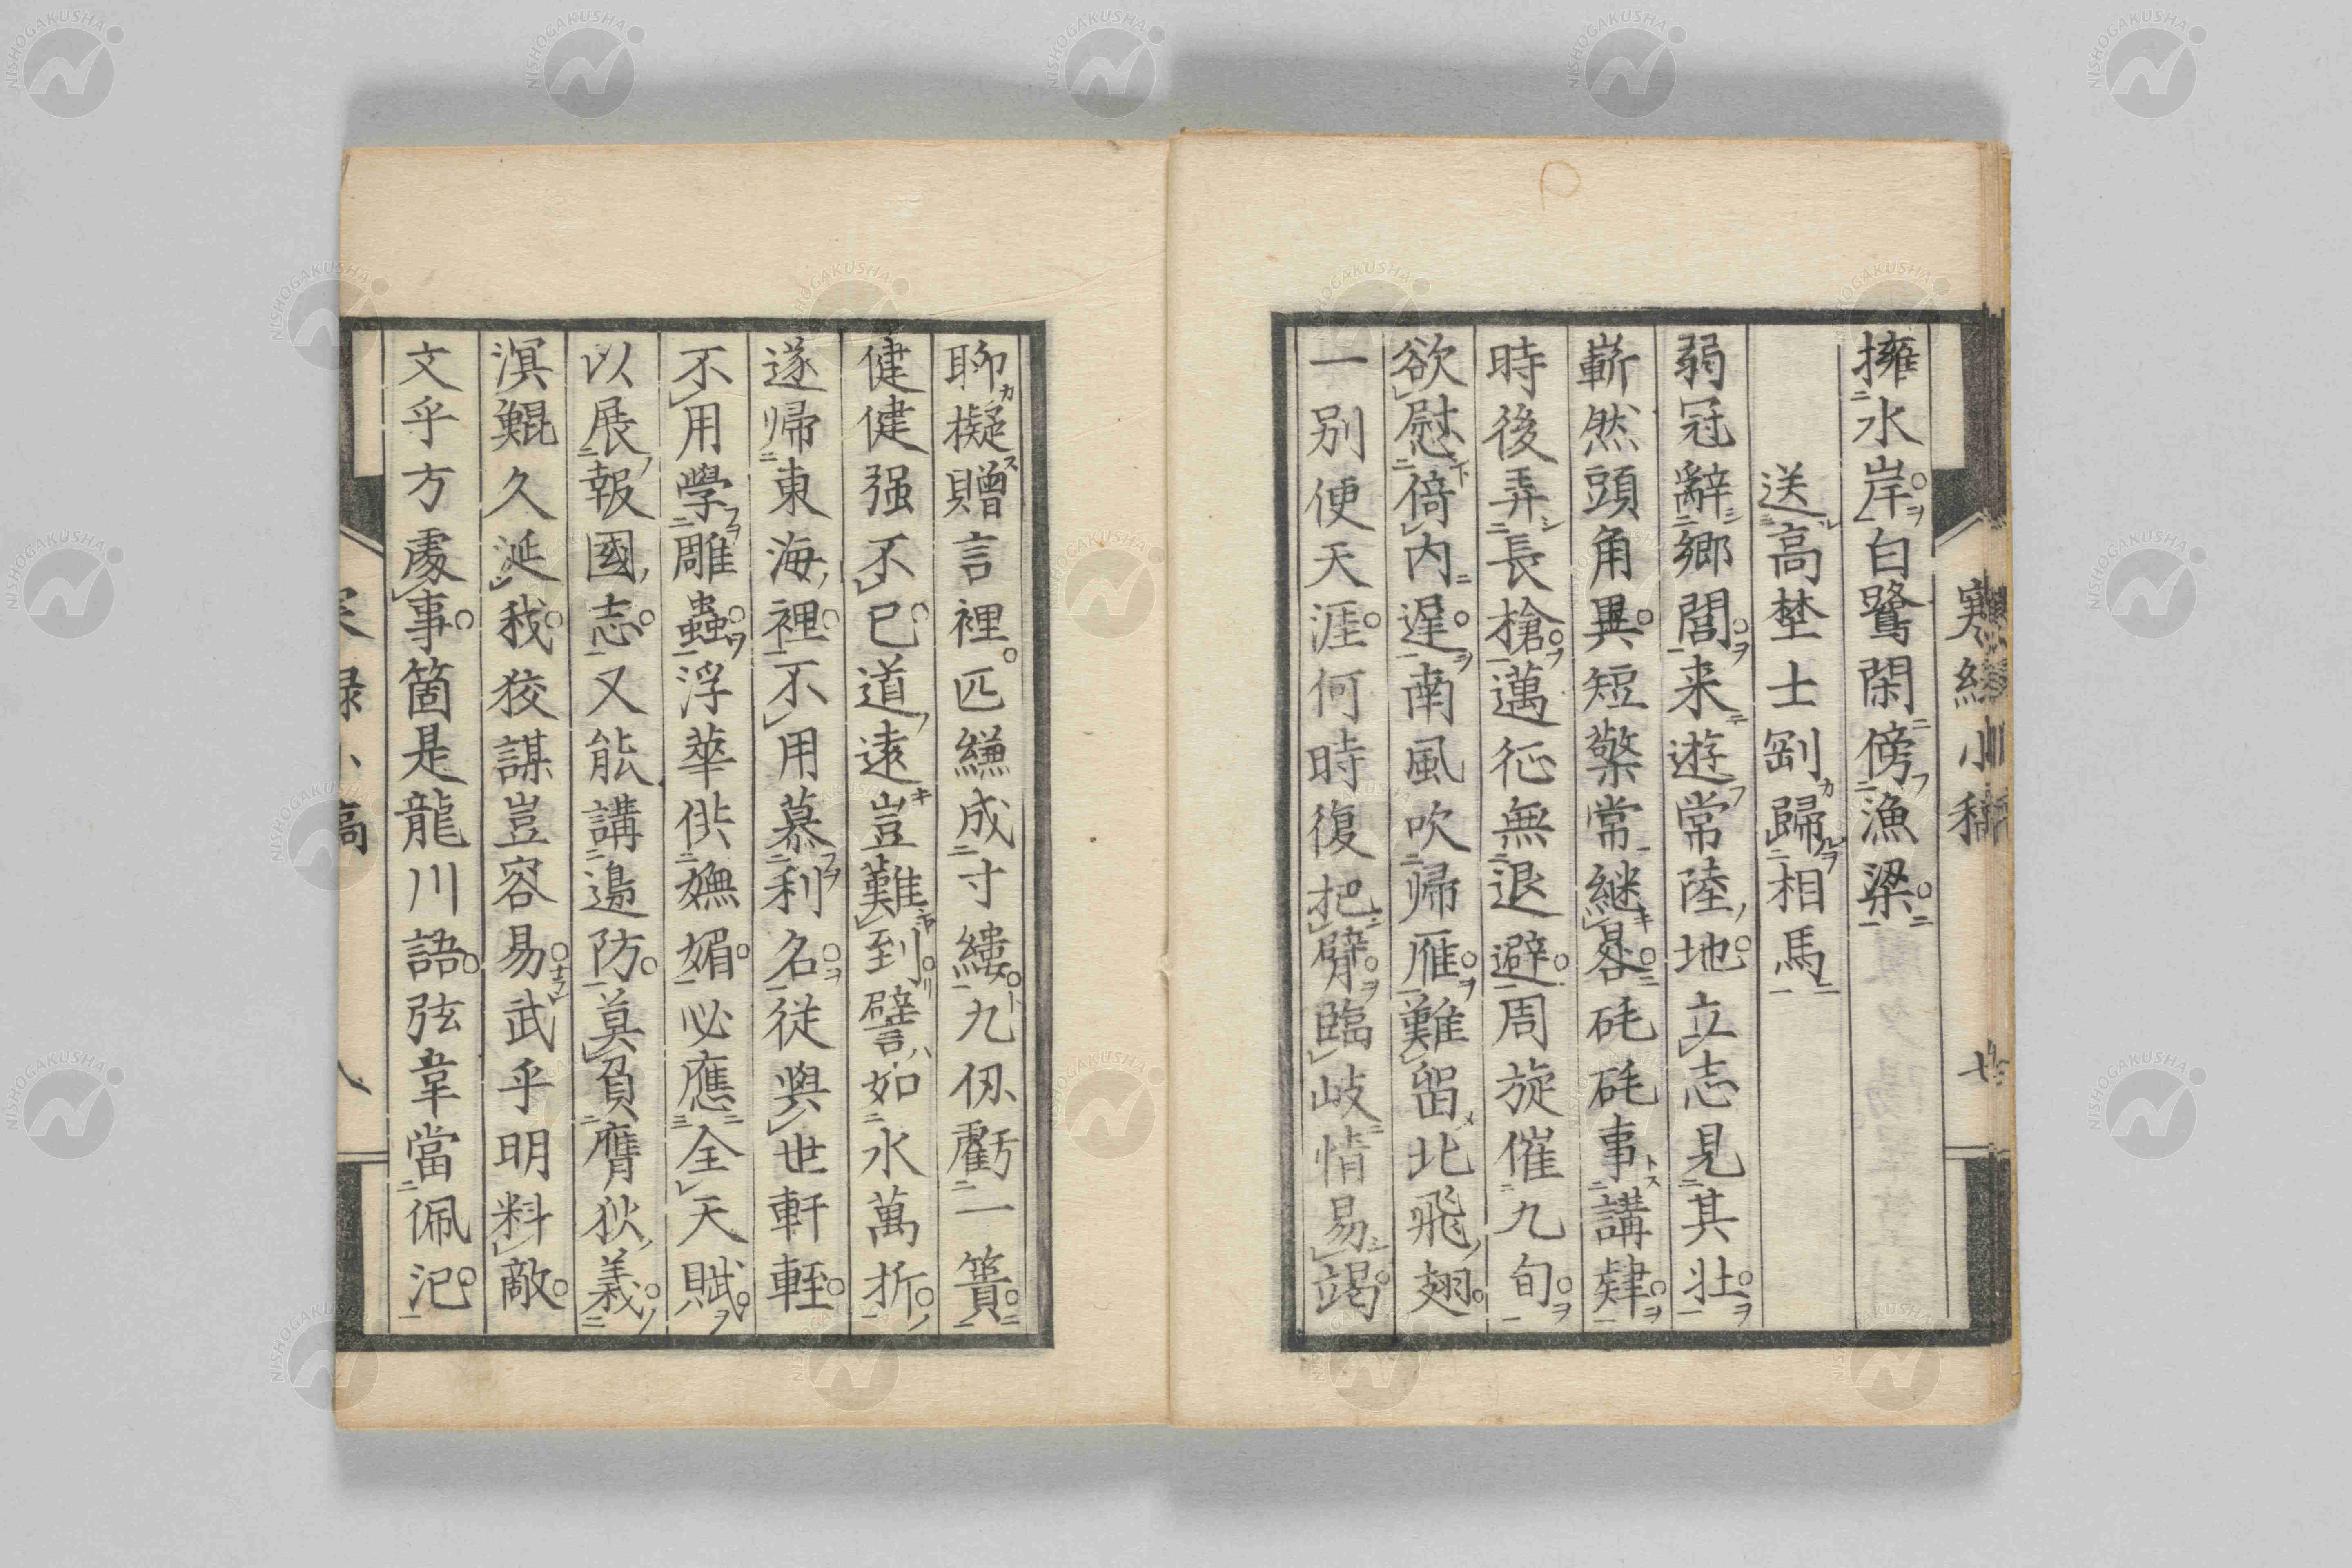 擁水岸白鷺閑傍漁梁
送高埜士劄歸相馬
弱冠辭鄉閭来遊常陸地立志見其壮
嶄然頭角異短檠常継晷矻矻事講肄
時後弄長槍邁征無退避周旋催九旬
欲慰倚門遅南風吹帰雁難留北飛翅
一别便天涯何時復把臂臨岐情易竭
聊擬贈言裡匹縑成寸縷九仞虧一簣
健健强不已道遠豈難到譬如水萬折
遂帰東海裡不用慕利名従與世軒輊
不用學雕蟲浮華供嫵媚必應全天賦
以展報國志又能講邉防莫負膺狄義
溟鯤久涎我狡謀豈容易武乎明料敵
文乎方處事箇是龍川語弦韋當佩
NISHOGAKUSHA